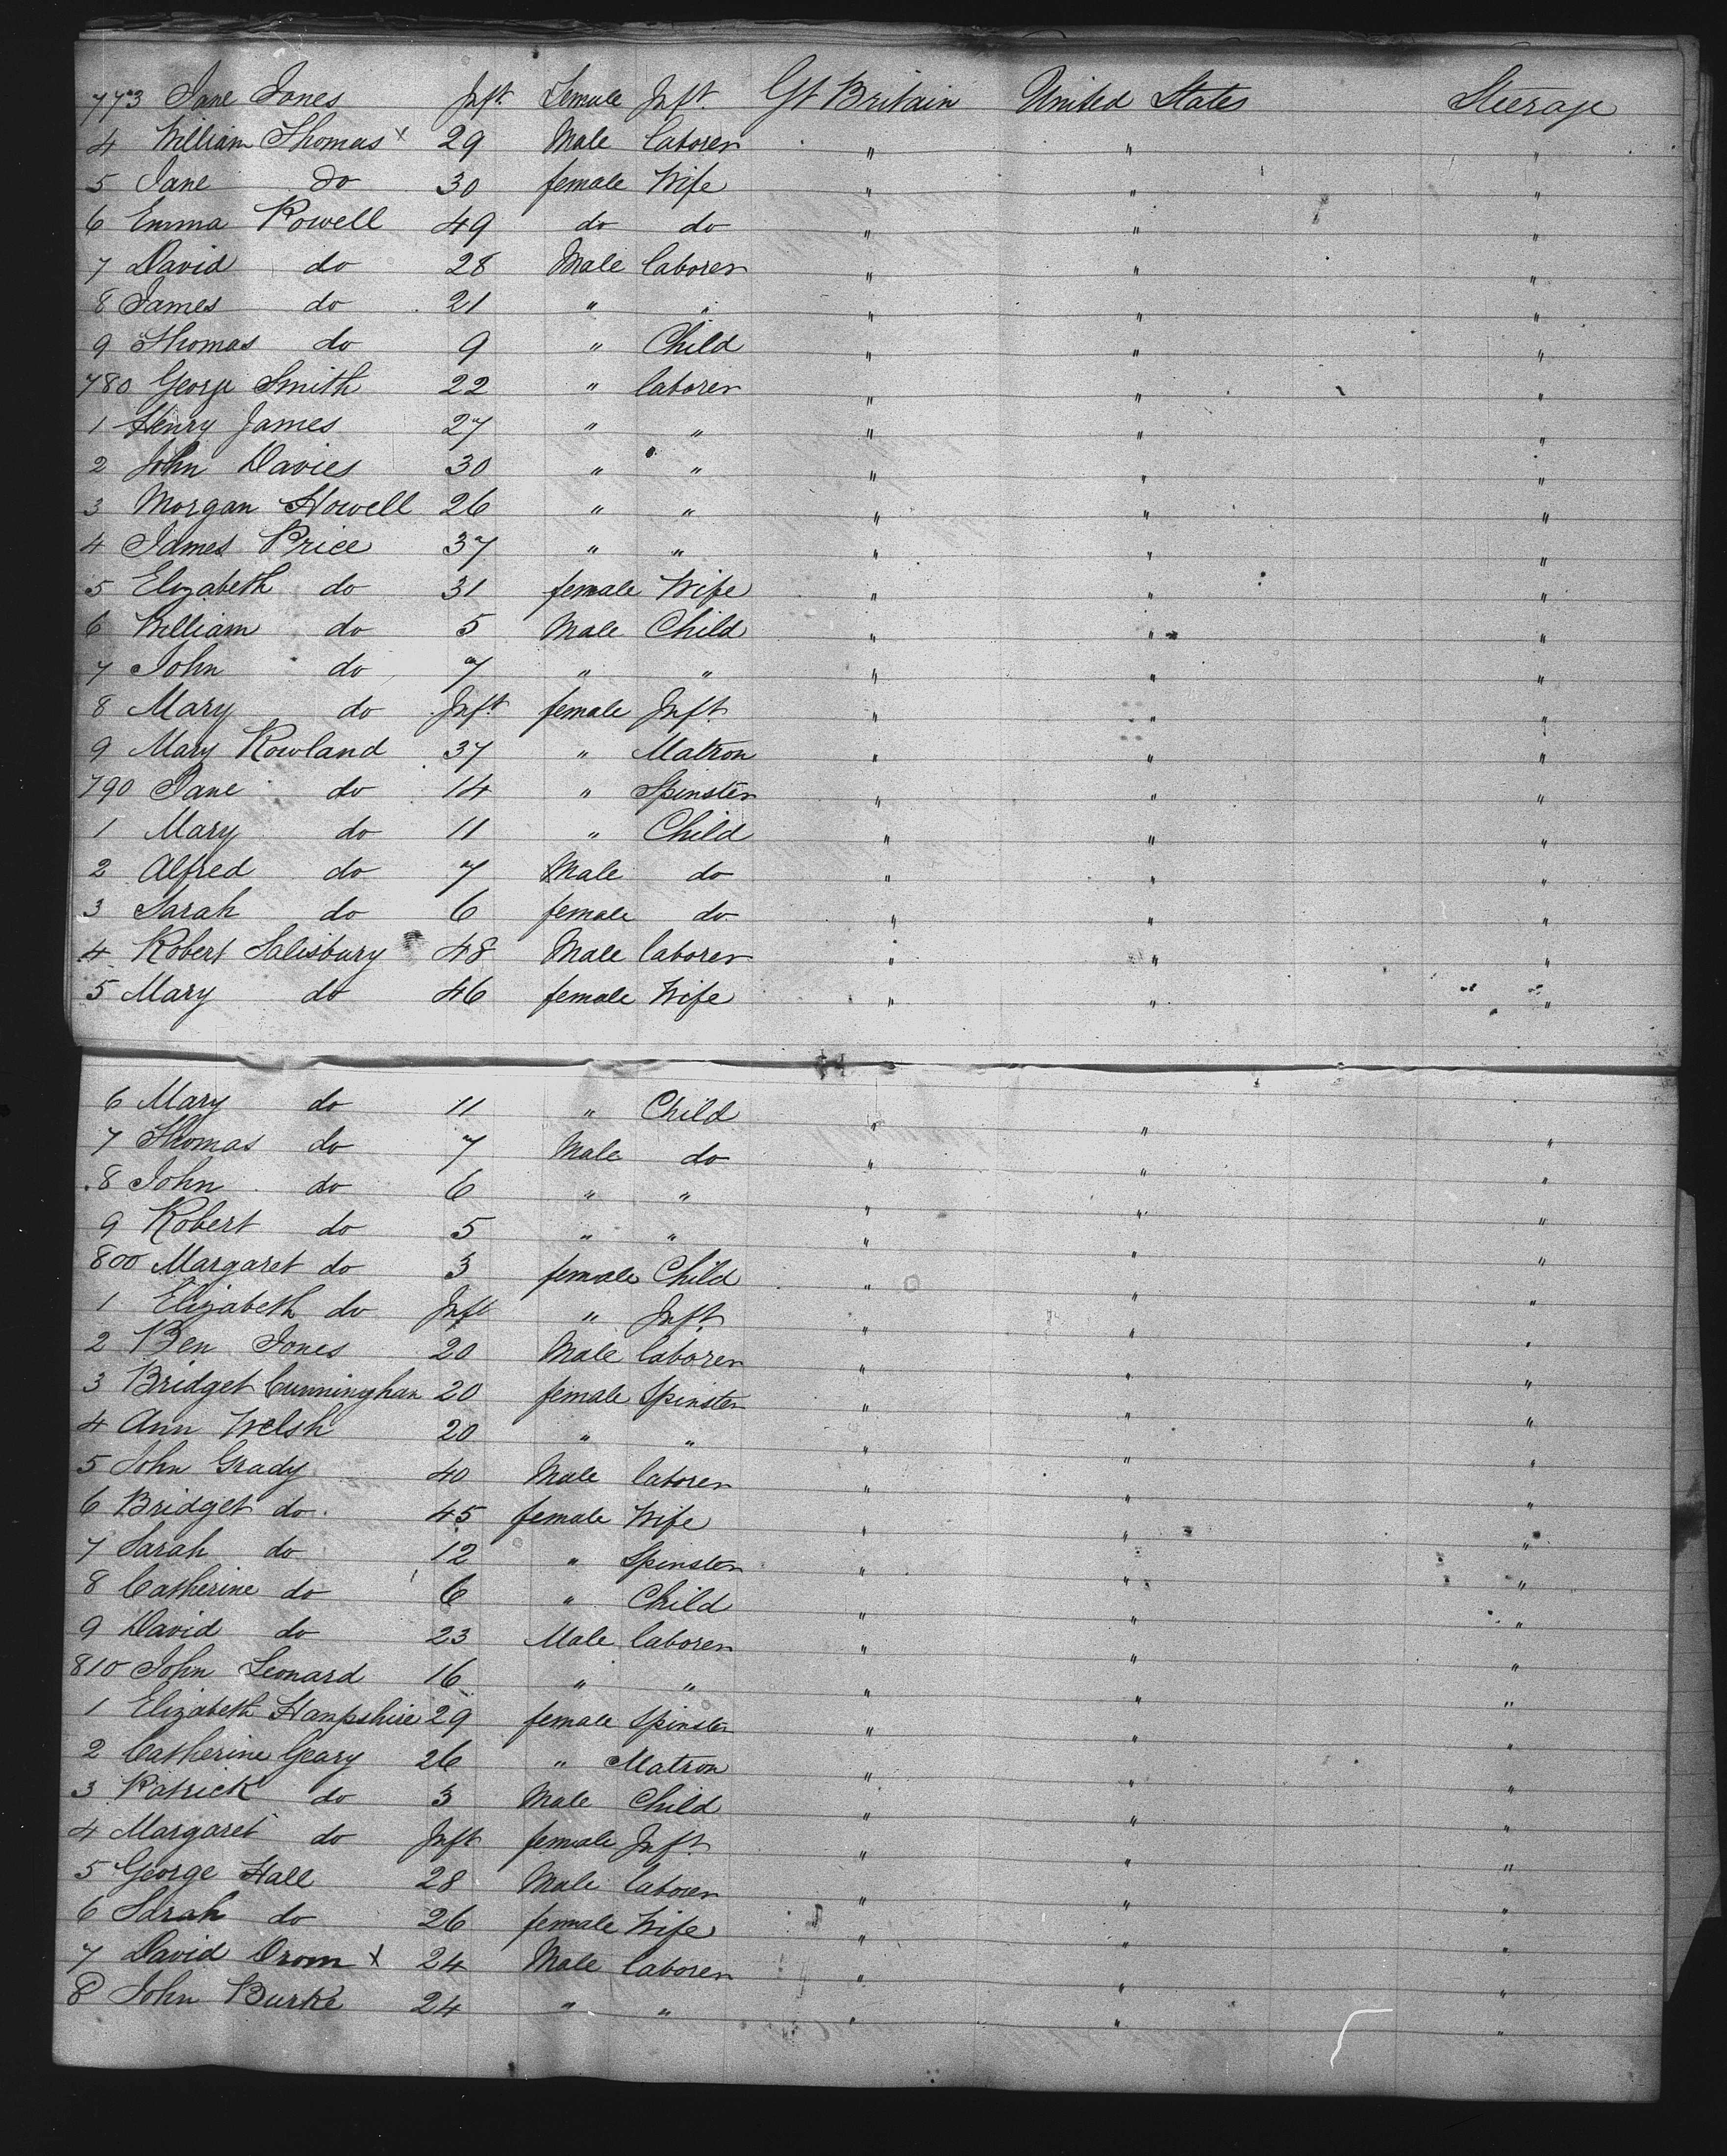 773 Jane Jones Inft. Female Inft. Gt Britain United States Steerage
4 William Thomas x 29 Male laborer " " "
5 Jane do 30 female Wife " " "
6 Emma Powell 49 do do " " "
7 David do 28 Male laborer " " "
8 James do 21 " " " " "
9 Thomas do 9 " Child " " "
780 George Smith 22 " laborer " " "
1 Henry James 27 " " " " "
2 John Davies 30 " " " " "
3 Morgan Howell 26 " " " " "
4 James Price 37 " " " " "
5 Elizabeth do 31 female Wife " " "
6 William do 5 Male Child " " "
7 John do 7 " " " " "
8 Mary do Inft. female Inft. " " "
9 Mary Rowland 37 " Matron " " "
790 Jane do 14 " Spinster " " "
1 Mary do 11 " Child " " "
2 Alfred do 7 Male do " " "
3 Sarah do 6 female do " " "
4 Robert Salisbury 48 Male laborer " " "
5 Mary do 46 female Wife " " "
6 Mary do 11 " Child " " "
7 Thomas do 7 Male do " " "
8 John do 6 " " " " "
9 Robert do 5 " " " " "
800 Margaret do 3 female Child " " "
1 Elizabeth do Inft " Inft. " " "
2 Ben Jones 20 Male laborer " " "
3 Bridget Cunningham 20 female Spinster " " "
4 Ann Welsh 20 " " " " "
5 John Grady 40 Male laborer " " "
6 Bridget do. 45 female Wife " " "
7 Sarah do 12 " Spinster " " "
8 Catherine do 6 " Child " " "
9 David do 23 Male laborer " " "
810 John Leonard 16 " " " " "
1 Elizabeth Hanpshire 29 female Spinster " " "
2 Catherine Geary 26 " Matron " " "
3 Patrick do 3 Male Child " " "
4 Margaret do Inft female Inft. " " "
5 George Hall 28 Male laborer " " "
6 Sarah do 26 female Wife " " "
7 David x 24 Male laborer " " "
8 John Burke 24 " " " " "